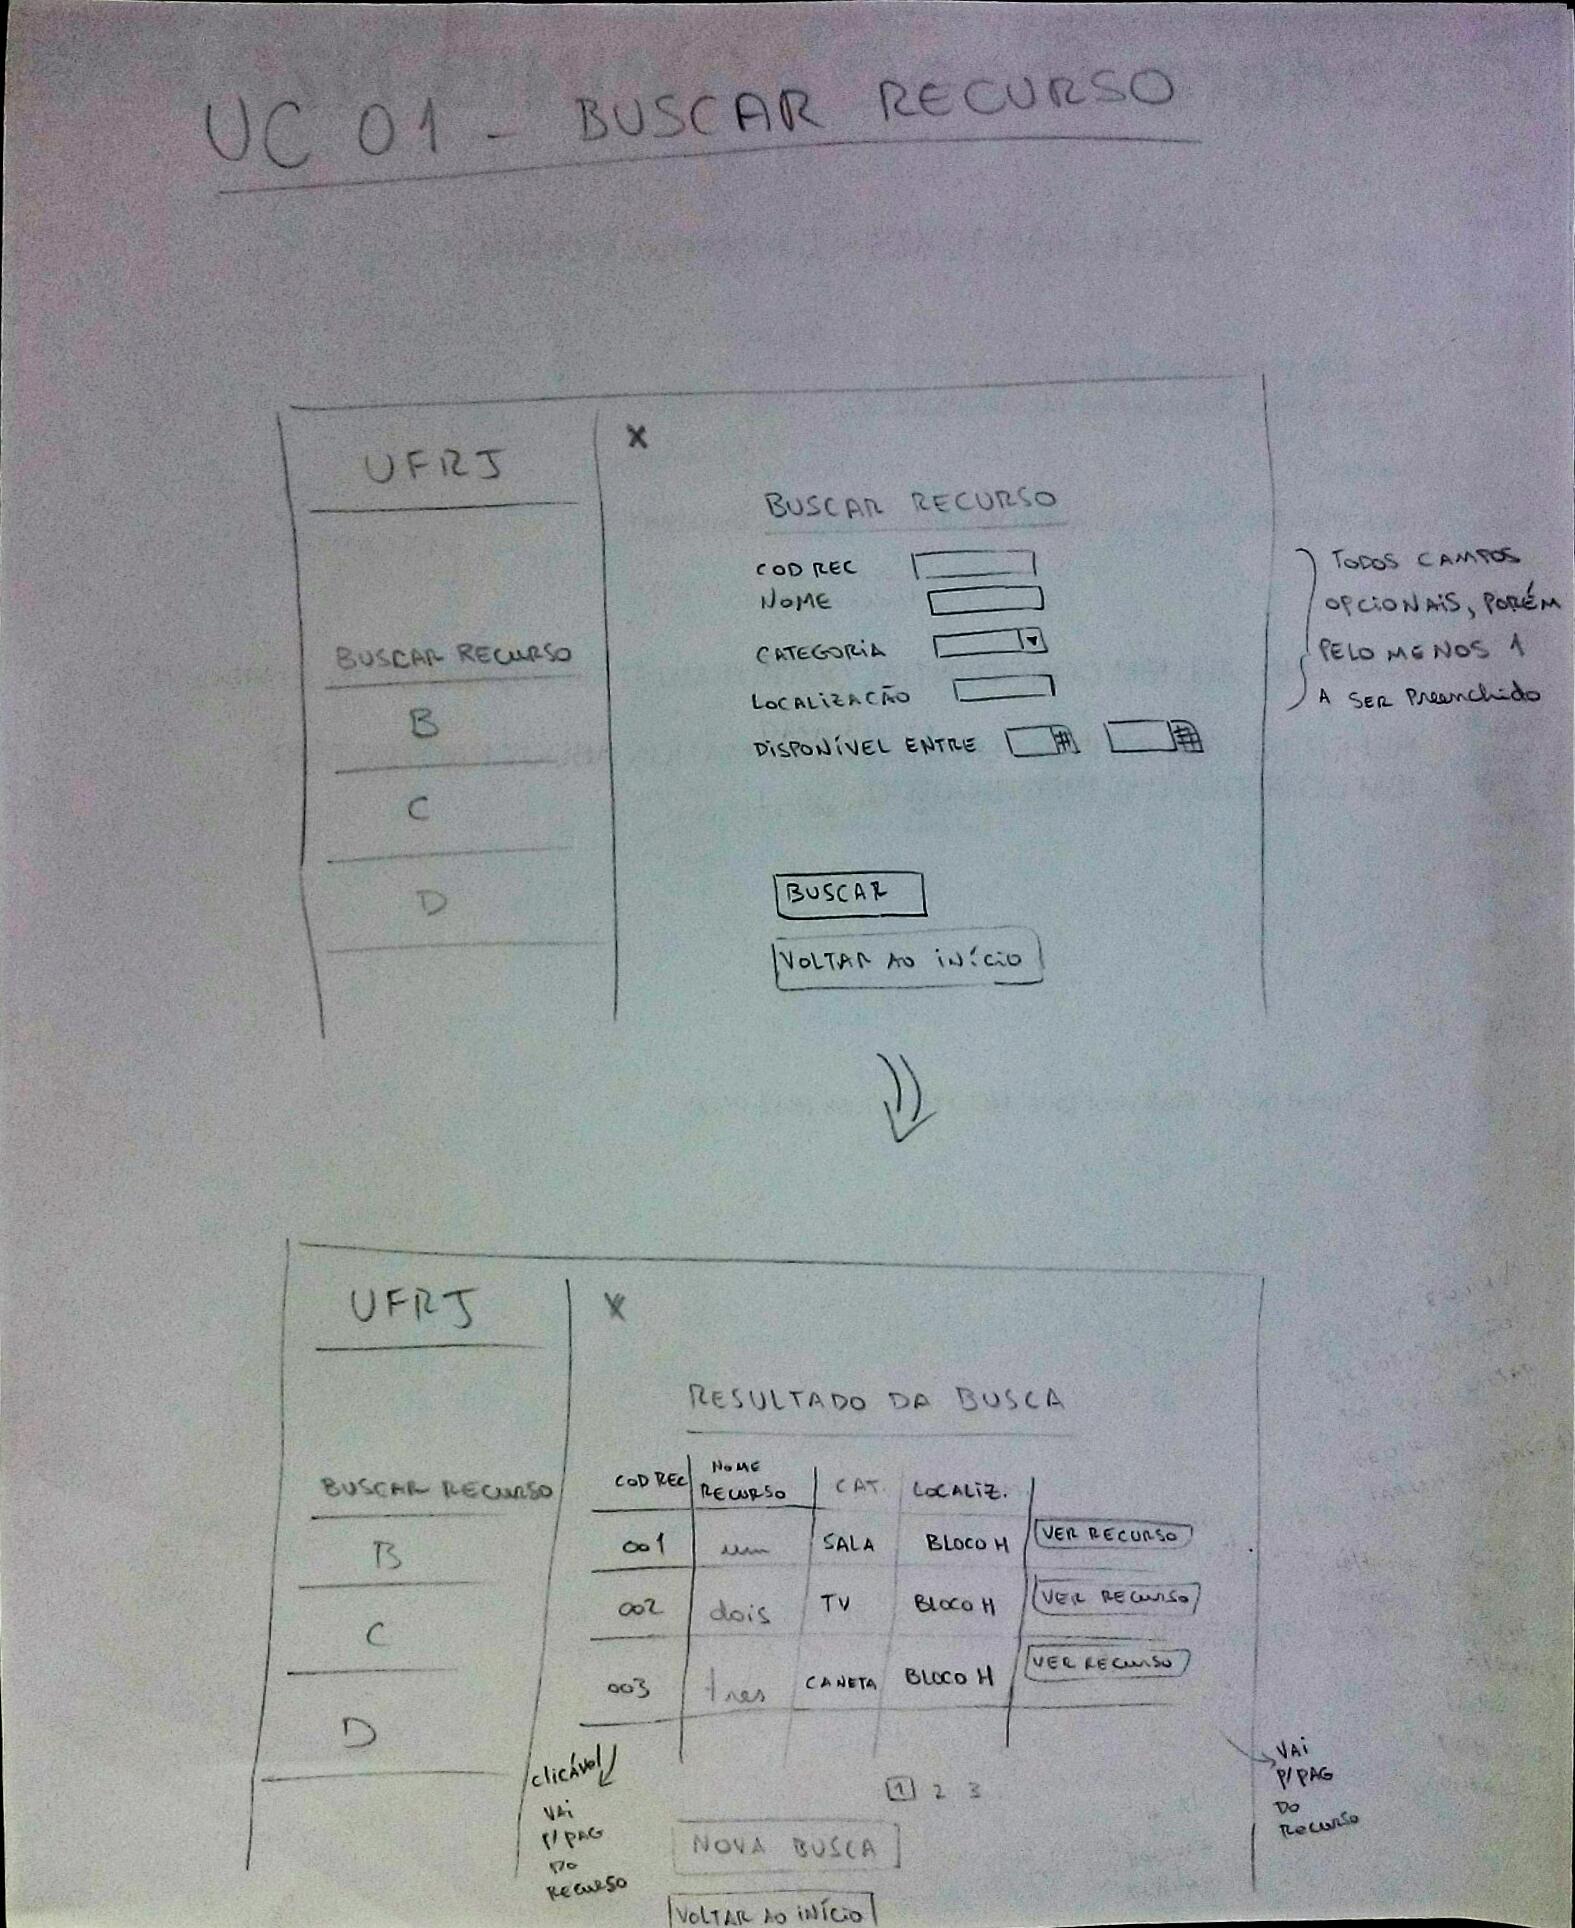 UC 01 - BUSCAR RECURSO
UFRJ
X
BUSCAR RECURSO
COD REC
NOME
CATEGORIA
LOCALIZAÇÃO
DISPONÍVEL ENTRE
TODOS CAMPOS
OPCIONAIS, PORÉM
PELO MENOS 1
A SER Preenchido
BUSCAR RECURSO
B
C
D
BUSCAR
VOLTAR AO INÍCIO
UFRJ
X
RESULTADO DA BUSCA
BUSCAR RECURSO
B
C
D
COD REC NOME RECURSO CAT. LOCALIZ.
001 um SALA BLOCO H VER RECURSO
002 dois TV BLOCO H VER RECURSO
003 tres CANETA BLOCO H VER RECURSO
clicável
VAI
P/ PAG
DO
RECURSO
VAI
P/ PAG
DO
RECURSO
1 2 3
NOVA BUSCA
VOLTAR AO INÍCIO